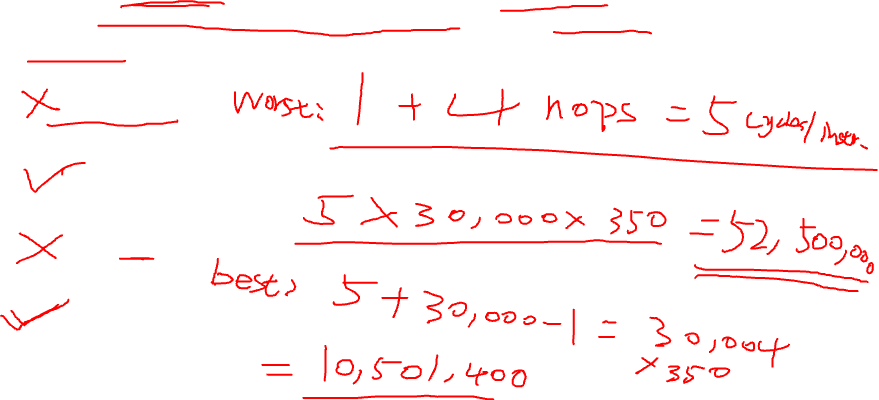 ×
worst: 1 + 4 nops = 5 cycles/instr.
✓
5 × 30,000 × 350 = 52,500,000
×
—
best: 5 + 30,000 - 1 = 30,004
✓
× 350
= 10,501,400